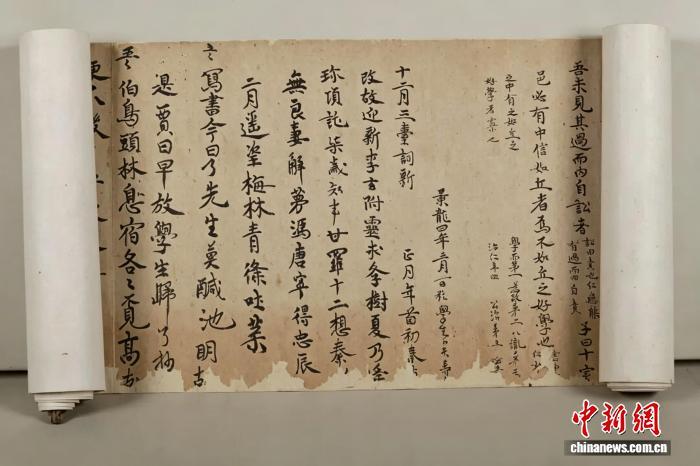 吾未見其過而內自訟者 子曰十室
有過而自責
邑必有忠信如丘者焉不如丘之好學也
之中有之如丘之
好學者寡
學而第一 為政第二 八佾第三
景龍四年三月一日私學生卜天壽
十二月三臺詞新 正月年首初春
改故迎新李玄附靈求學樹夏乃逢
珎項託柒歲知事甘羅十二想秦
無良妻解夢馮唐寧得忠辰
二月遥望梅林青條吐葉
寫書今日了先生莫鹹池明
是賈日早放學生歸了抄
伯鳥頭林息宿各各覓高
中新網
chinanews.com